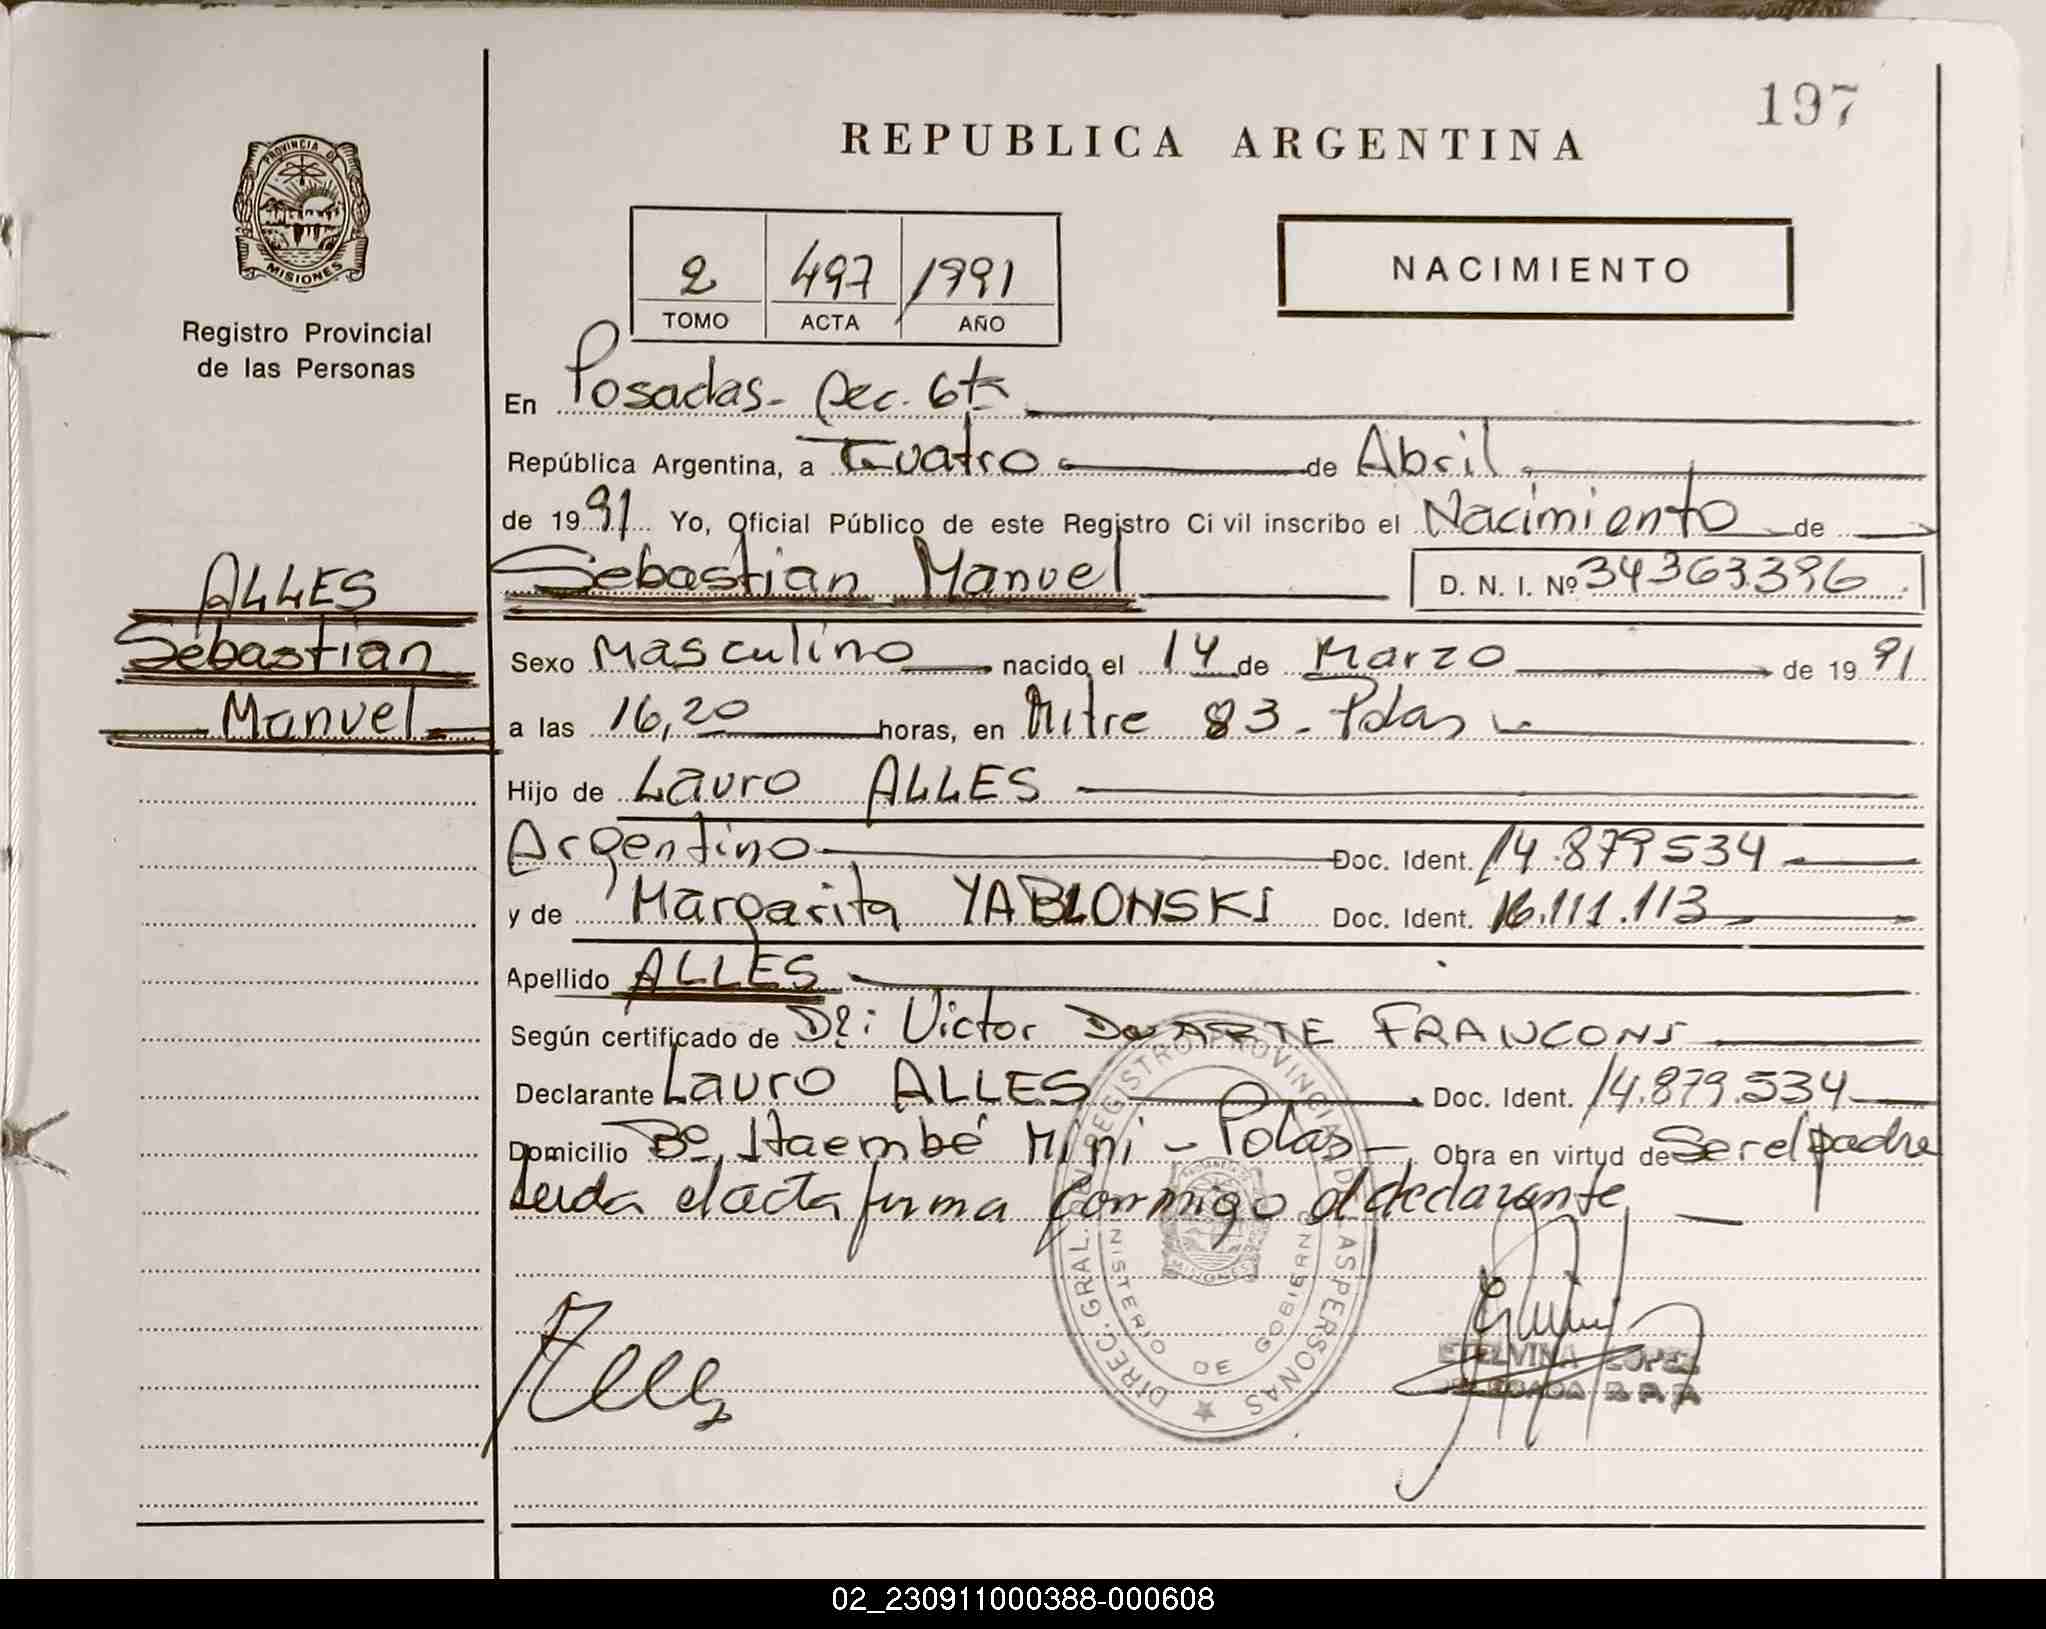 197
REPUBLICA ARGENTINA
PROVINCIA DE
MISIONES
Registro Provincial
de las Personas
2 497 1991
TOMO ACTA AÑO
NACIMIENTO
En Posadas - Sec. 6ta
República Argentina, a Cuatro de Abril
de 1991 Yo, Oficial Público de este Registro Civil inscribo el Nacimiento de
ALLES
Sebastian
Manuel
Sebastian Manuel D. N. I. Nº 34363.396
Sexo Masculino nacido el 14 de Marzo de 1991
a las 16,20 horas, en Mitre 83 - Pdas
Hijo de Lauro ALLES
Argentino Doc. Ident. 14.879534
y de Margarita YABLONSKI Doc. Ident. 16.111.113
Apellido ALLES
Según certificado de Dr: Victor DUARTE FRANCONS
Declarante Lauro ALLES Doc. Ident. 14.879.534
Domicilio Bº Itaembé Mini - Pdas - Obra en virtud de Ser el padre
Leida el acta firma conmigo el declarante
DIREC. GRAL. DEL REGISTRO PROVINCIAL DE LAS PERSONAS
MINISTERIO DE GOBIERNO
MISIONES
Alles
ETELVINA LOPEZ
DELEGADA R. P. P.
02_230911000388-000608